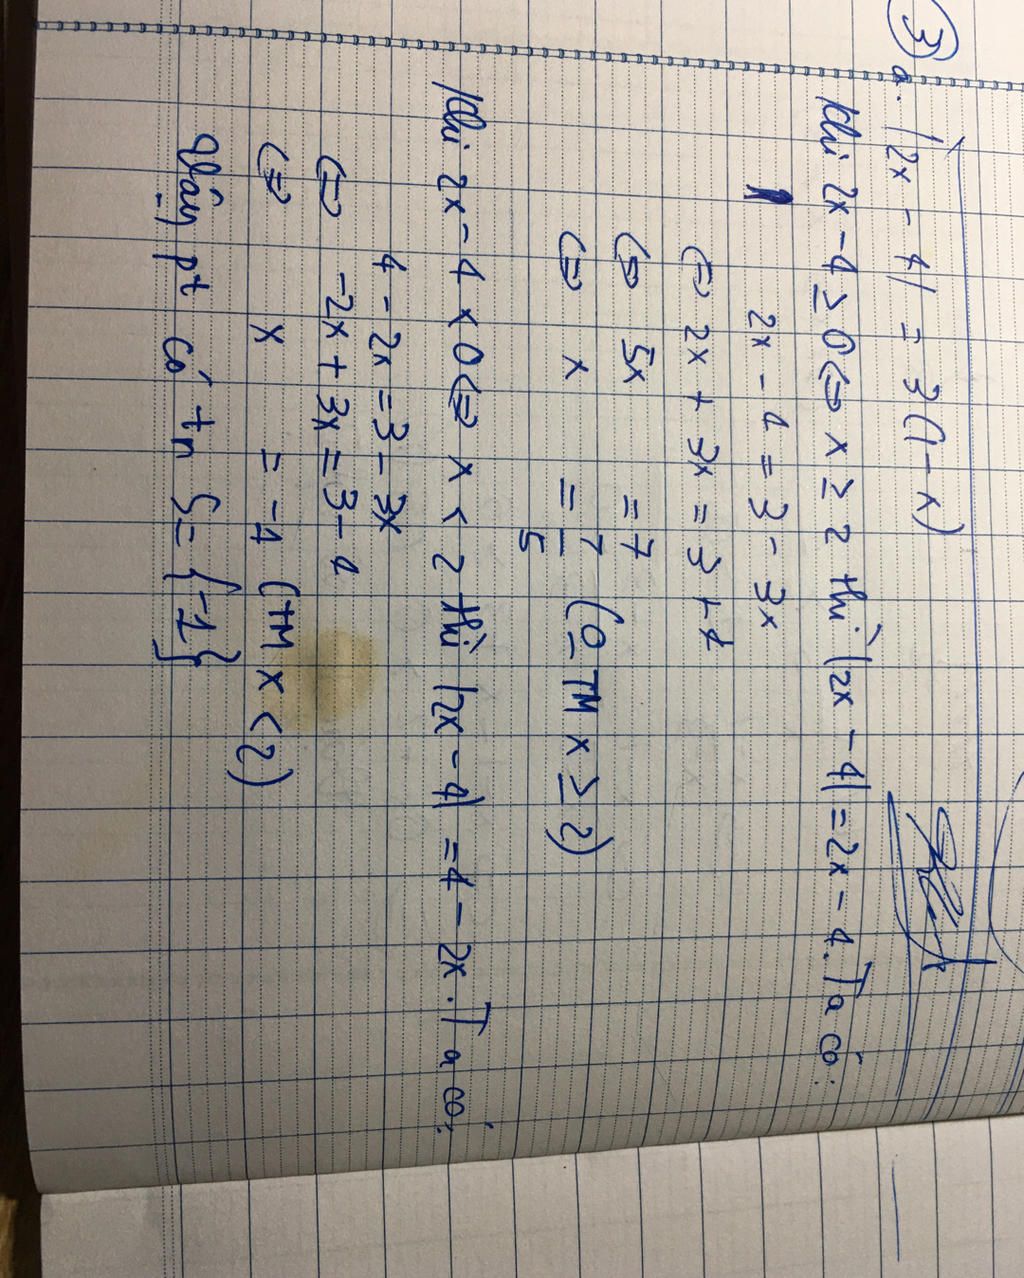 ③ a. |2x - 4| = 3(1 - x)
Khi 2x - 4 ≥ 0 ⇔ x ≥ 2 thì |2x - 4| = 2x - 4. Ta có:
2x - 4 = 3 - 3x
⇔ 2x + 3x = 3 + 4
⇔ 5x = 7
⇔ x = 7/5 (0 TM x ≥ 2)
Khi 2x - 4 < 0 ⇔ x < 2 thì |2x - 4| = 4 - 2x. Ta có:
4 - 2x = 3 - 3x
⇔ -2x + 3x = 3 - 4
⇔ x = -1 (TM x < 2)
Vậy pt có tn S = {-1}